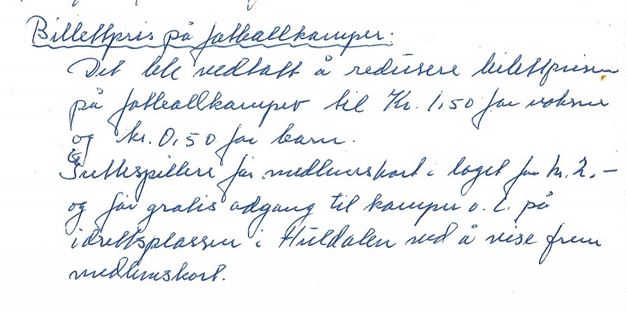 Billettpris på fotballkamper:
Det ble vedtatt å redusere bilettprisen
på fotballkamper til Kr. 1,50 for voksne
og kr. 0,50 for barn.
Guttespillere får medlemskort i laget for kr. 2,-
og får gratis adgang til kamper o. l. på
idrettsplassen i Huldalen ved å vise frem
medlemskort.